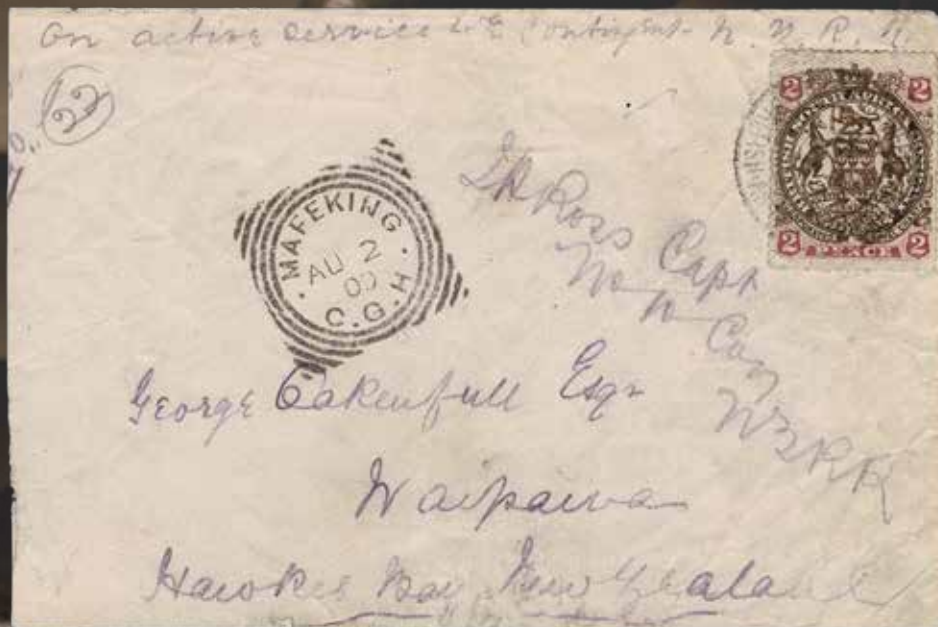 On active service 4th Contingent N. Z. R. R.
22
MAFEKING
AU 2
00
C.G.H
2 2
2 PENCE 2
Ross Capt
No Coy
NZRR
George Oakenfull Esqr
Waipawa
Hawkes Bay New Zealand